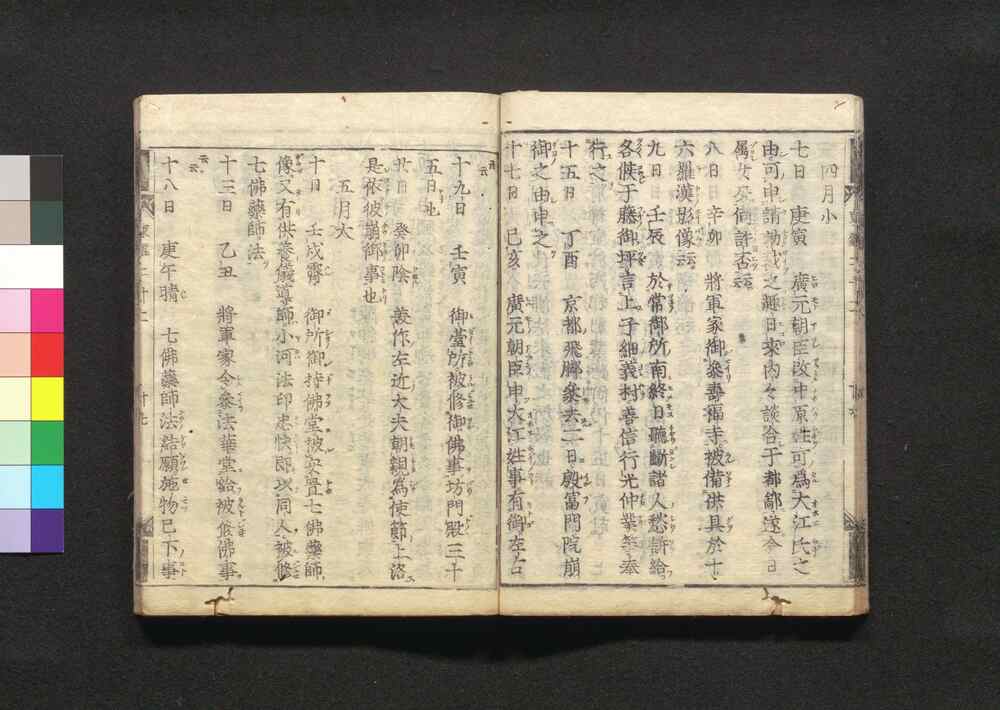 四月小
七日 庚寅 廣元朝臣改中原姓可為大江氏之
由可申請勅裁之趣日來內々談合于都鄙遂今日
属女房伺許否云云
八日 辛卯 將軍家御參壽福寺被備供具於十
六羅漢影像云云
九日 壬辰 於常御所南終日聽斷諸人愁訴給
各候于藤御坪言上子細義村善信行光仲業等奉
行之
十五日 丁酉 京都飛脚參去二日殷富門院崩
御之由申之
十七日 己亥 廣元朝臣申大江姓事有御左右
云云
十九日 壬寅 御臺所被修御佛事坊門殿三十
五日也
廿日 癸卯陰 美作左近大夫朝親為使節上洛
是依彼崩御事也
五月大
十日 壬戌霽 御所御持佛堂被安置七佛藥師
像又有供養儀導師小河法印忠快即以同人被修
七佛藥師法
十三日 乙丑 將軍家令參法華堂給被修佛事
云云
十八日 庚午晴 七佛藥師法結願施物已下事